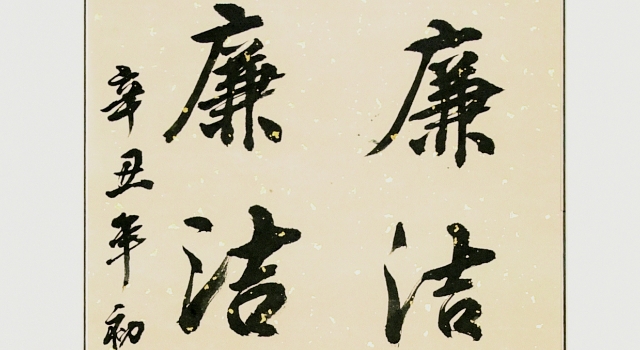 廉洁
廉洁
辛丑年初